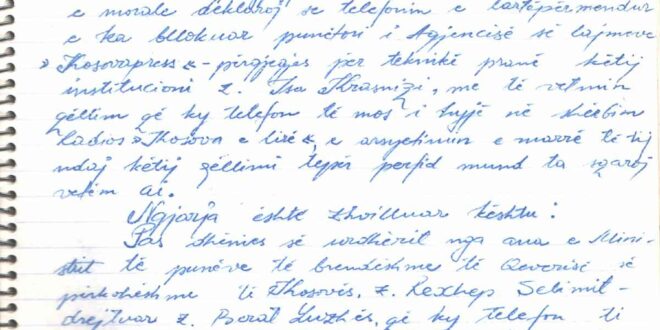 e morale deklaroj se telefonin e lartëpërmendur
e ka bllokuar punëtori i Agjencisë së lajmeve
»Kosovapress«-përgjegjës për teknikë pranë këtij
institucioni z. Isa Krasniqi, me të vetmin
qëllim që ky telefon të mos i hyjë në shërbim
Radios »Kosova e lirë«, e arsyetimin e marrë të tij
ndaj këtij qëllimi tejër perfid mund ta sqaroj
vetëm ai.
Ngjarja është zhvilluar kështu:
Pas dhënies së urdhërit nga ana e Mini-
strit të punëve të brendëshme të Qeverisë së
përkohëshme të Kosovës, z. Rexhep Selimit-
drejtuar z. Berat Luzhës, që ky telefon ti